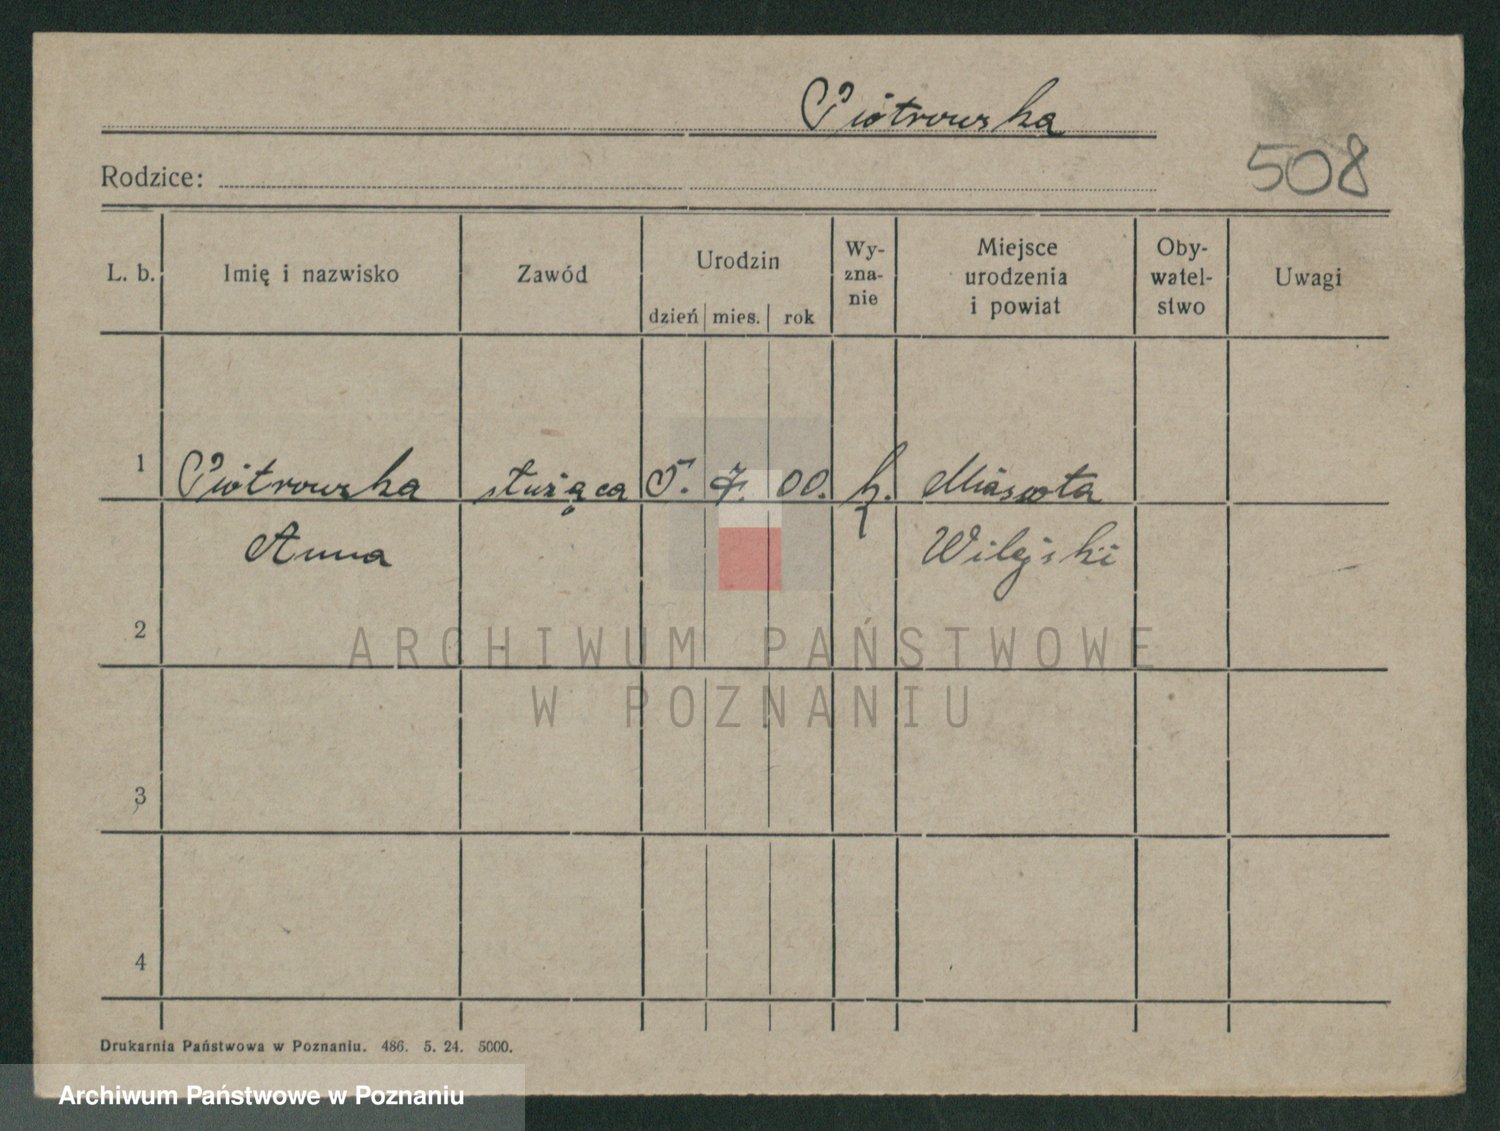 Piotrowska
508
Rodzice:
L. b. Imię i nazwisko Zawód Urodzin dzień mies. rok Wy-zna-nie Miejsce urodzenia i powiat Oby-watel-stwo Uwagi
1 Piotrowska służąca 5. 7. 00. k. Miasota
Anna Wilejski
2
3
4
ARCHIWUM PAŃSTWOWE
W POZNANIU
Drukarnia Państwowa w Poznaniu. 486. 5. 24. 5000.
Archiwum Państwowe w Poznaniu